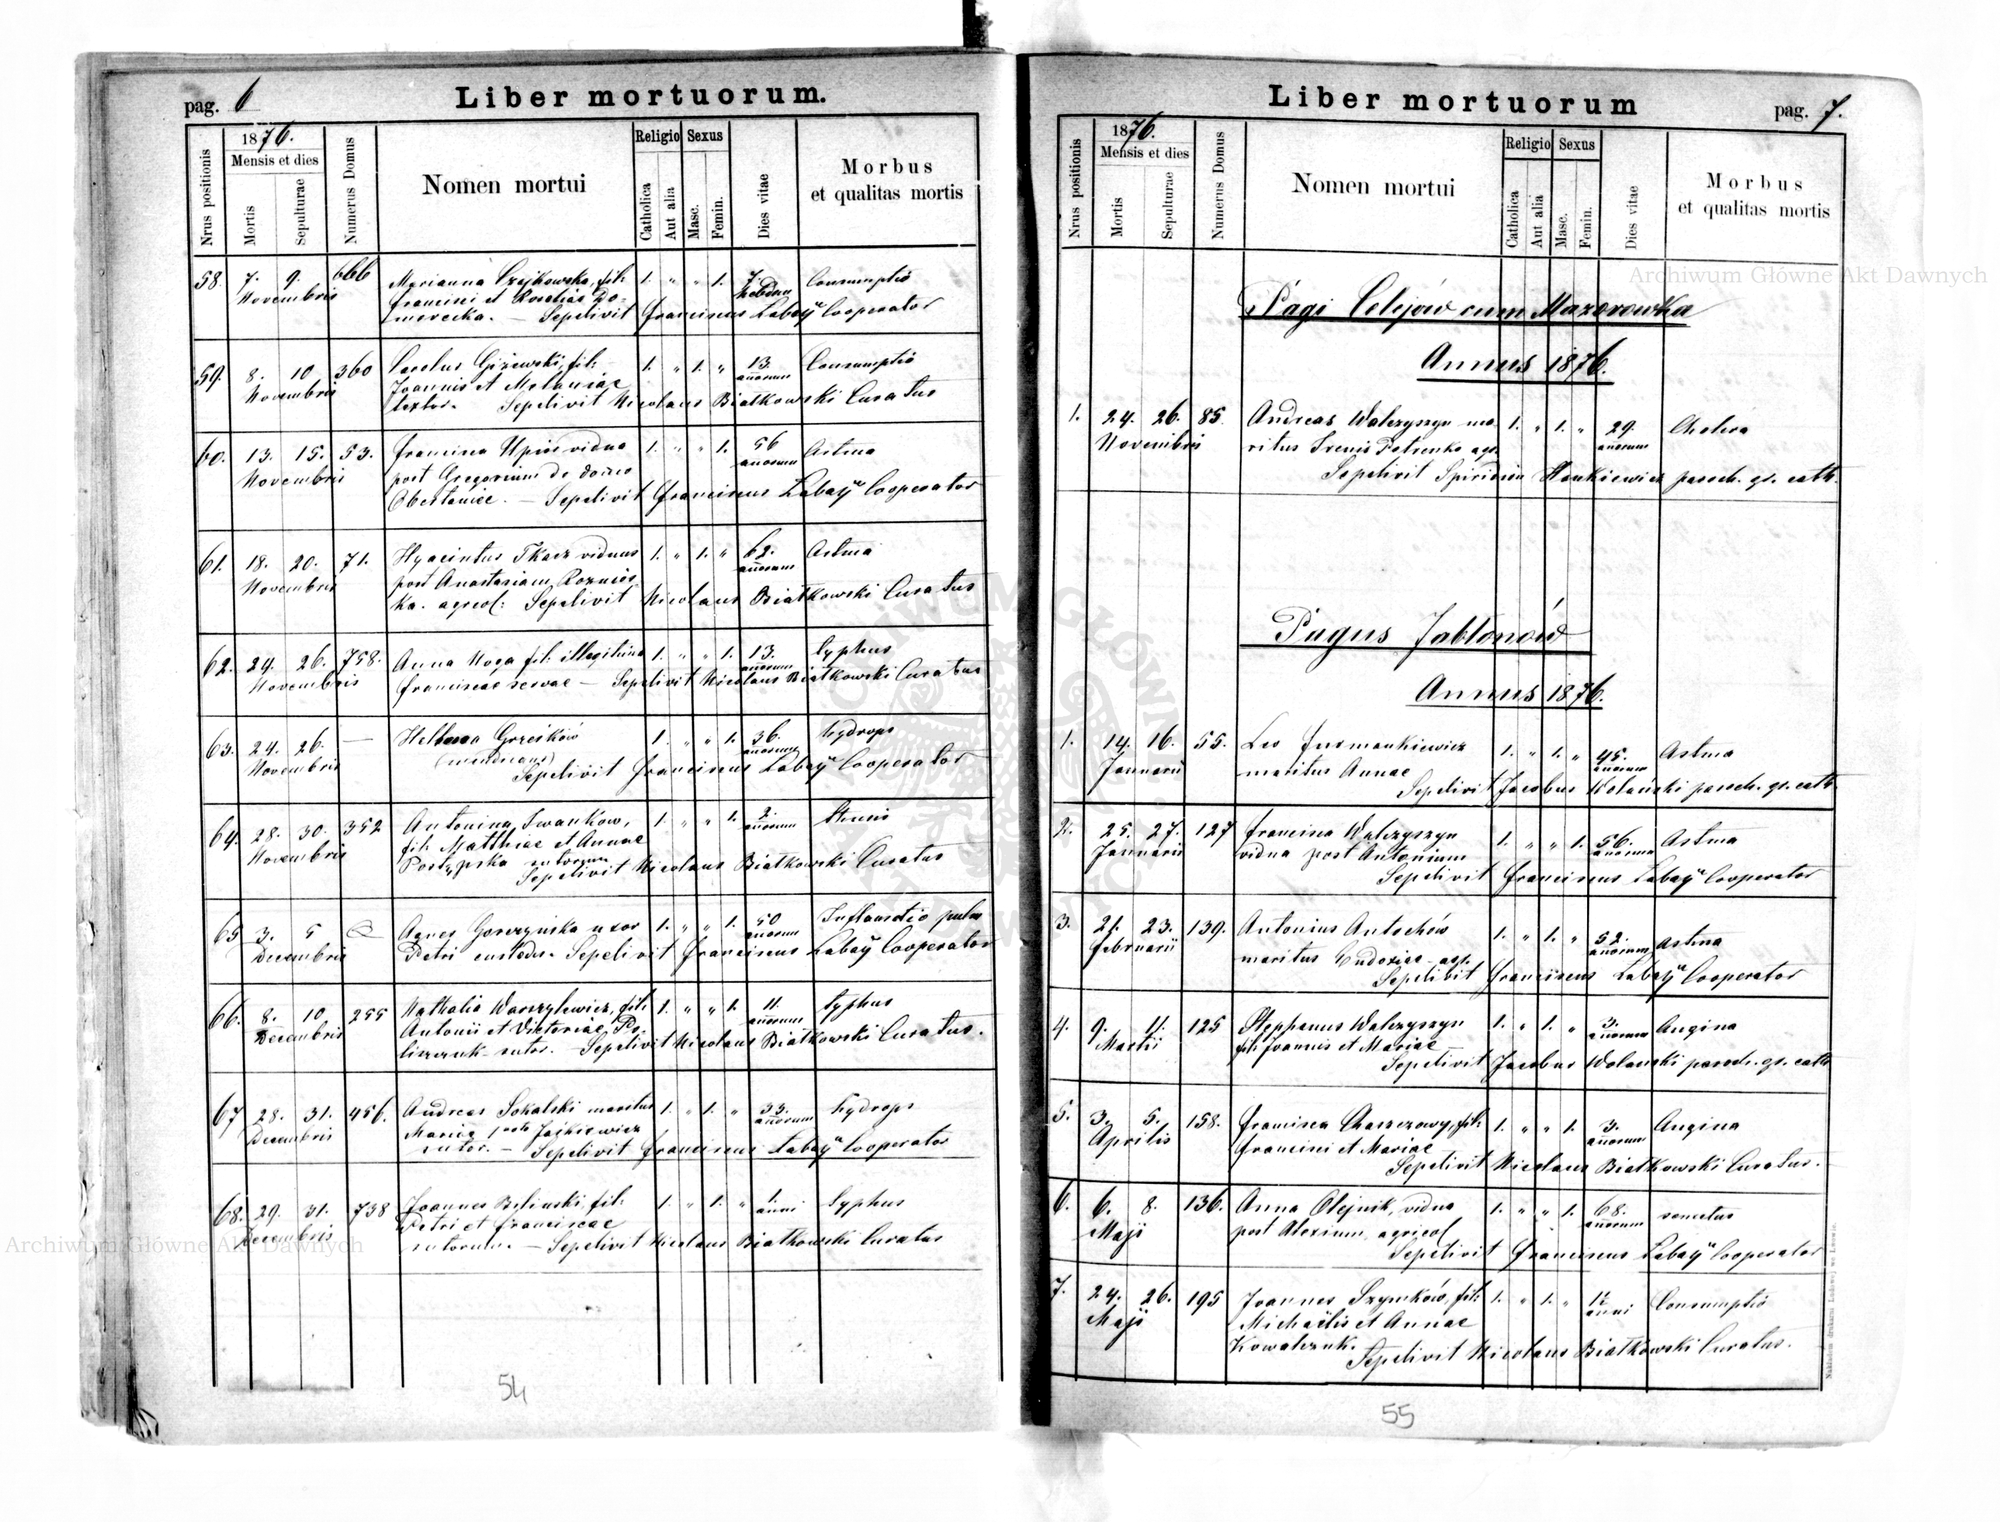 pag. 6
Liber mortuorum.
Nrus positionis
1876.
Mensis et dies
Mortis
Sepulturae
Numerus Domus
Nomen mortui
Religio
Catholica
Aut alia
Sexus
Masc.
Femin.
Dies vitae
Morbus
et qualitas mortis
58. 7. 9. 666 Marianna Czajkowska, fil: 1. " " 1. 7. Consumptio
Novembris Francisci et Rosaliae Do-
Sepelivit Franciscus Labaÿ Cooperator
59. 8. 10 360 Carolus Giżewski, fil: 1. " 1. " 13. Consumptio
Novembris Joannis et Melaniae annorum
textor. Sepelivit Nicolaus Białkowski Curatus
60. 13. 15. 53. Francisca vidua 1. " " 1. 56 Astma
Novembris post Gregorium de domo annorum
Sepelivit Franciscus Labaÿ Cooperator
61. 18. 20. 71. Hyacintus Tkacz viduus 1. " 1. " 62. Astma
Novembris post Anastasiam Roznics- annorum
ka. agricol: Sepelivit Nicolaus Białkowski Curatus
62. 24. 26. 758. Anna Noga fil: illegitima 1. " " 1. 13. Typhus
Novembris Franciscae servae — annorum
Sepelivit Nicolaus Białkowski Curatus
63. 24. 26. — Grześków 1. " " 1. 36. hydrops
Novembris annorum
Sepelivit Franciscus Labaÿ Cooperator
64. 28. 30. 352 Antonina Iwanków, 1. " " 1. 2. tussis
Novembris fil: Matthiae et Annae annorum
Sepelivit Nicolaus Białkowski Curatus
65 3. 5 Agnes Gorczyńska uxor 1. " " 1. 50 Inflamatio pulm
Decembris Petri custodis. Sepelivit Franciscus Labaÿ Cooperator annorum
66. 8. 10 255 Nathalia Warzylewicz, fil: 1. " " 1. 11. Typhus
Decembris Antonii et Victoriae Po- annorum
liszczuk sutor. — Sepelivit Nicolaus Białkowski Curatus.
67 28. 31. 456. Andreas Sokalski maritus 1. " 1. " 33. hydrops
Decembris Mariae Jaśkiewicz annorum
sutor. — Sepelivit Franciscus Labaÿ Cooperator
68. 29. 31. 738 Joannes Biliński, fil: 1. " 1. " 1. Typhus
Decembris Petri et Franciscae anni
sutorum. — Sepelivit Nicolaus Białkowski Curatus
54
pag. 7.
Liber mortuorum
Nrus positionis
1876.
Mensis et dies
Mortis
Sepulturae
Numerus Domus
Nomen mortui
Religio
Catholica
Aut alia
Sexus
Masc.
Femin.
Dies vitae
Morbus
et qualitas mortis
Pagi Celejów cum Mazorowka
Annus 1876.
1. 24. 26. 85. Andreas Walczyszyn ma- 1. " 1. " 29. Cholera
Novembris ritus Irenis Petrenko agr. annorum
Sepelivit Spiridion Hankiewicz paroch. gr. cath.
Pagus Jabłonów
Annus 1876.
1. 14. 16. 55. Leo Furmankiewicz 1. " 1. " 45. Astma
Januarii maritus Annae annorum
Sepelivit Jacobus Wolański paroch. gr. cath.
2. 25. 27. 127 Francisca Walczyszyn 1. " " 1. 56. Astma
Januarii vidua post Antonium annorum
Sepelivit Franciscus Labaÿ Cooperator
3. 21. 23. 139. Antonius Antochów 1. " 1. " 52. Astma
Februarii maritus Eudoxiae agr. annorum
Sepelivit Franciscus Labaÿ Cooperator
4. 9. 11. 125 Stephanus Walczyszyn 1. " 1. " 3. Angina
Martii fil: Joannis et Mariae annorum
Sepelivit Jacobus Wolański paroch. gr. cath
5. 3. 5. 158. Francisca fil: 1. " " 1. 3. Angina
Aprilis Francisci et Mariae annorum
Sepelivit Nicolaus Białkowski Curatus.
6. 6. 8. 136. Anna Olejnik, vidua 1. " " 1. 68. senectus
Maji post Alexium, agricol annorum
Sepelivit Franciscus Labaÿ Cooperator
7. 24. 26. 195 Joannes Szymków, fil: 1. " 1. " Consumptio
Maji Michaëlis et Annae anni
Kowalczuk.
Sepelivit Nicolaus Białkowski Curatus.
55
Archiwum Główne Akt Dawnych
Archiwum Główne Akt Dawnych